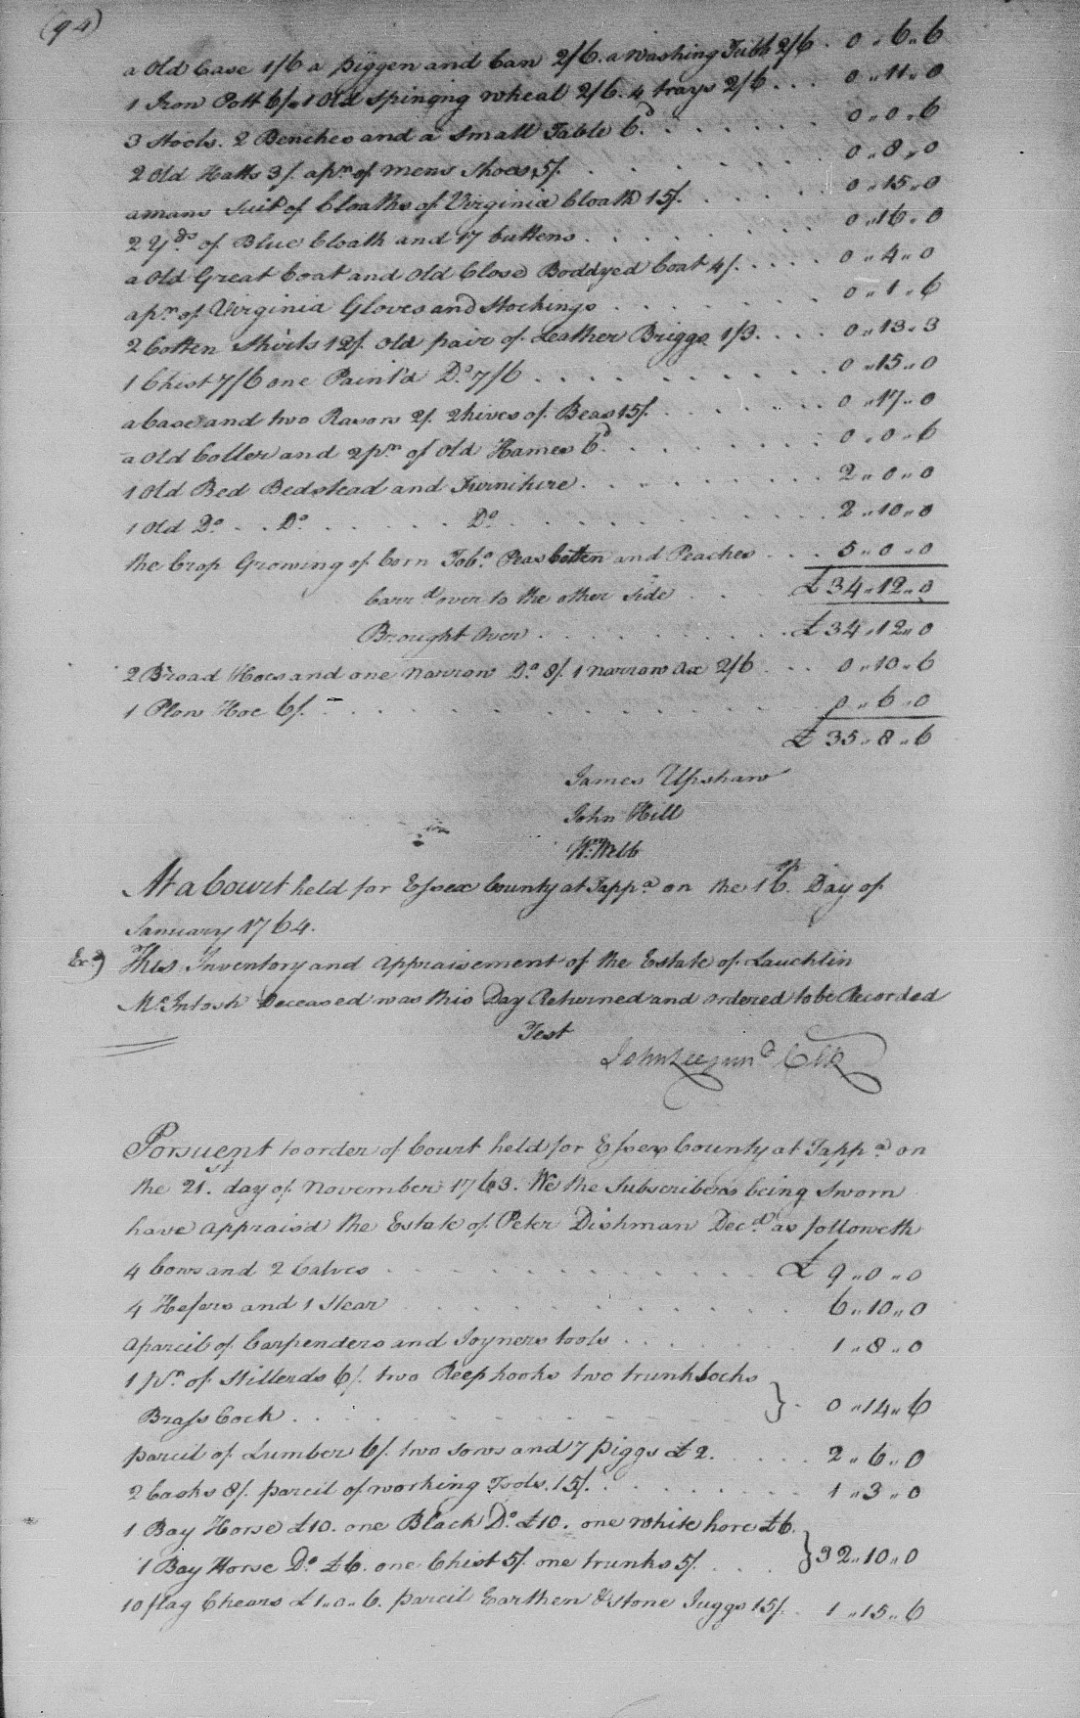 (94)
a Old Case 1/6 a piggen and Can 2/6. a washing Tubb 2/6 . 0 " 6 " 6
1 Iron Pott 6/ 1 Old Spinging wheal 2/6. 4 trays 2/6 . . . 0 " 11 " 0
3 Stools. 2 Benches and a Small Table 6d. . . . . . . 0 " 0 " 6
2 Old Hatts 3/. a pr. of mens Shoes 5/. . . . . . . 0 " 8 " 0
a mans Suit of Cloaths of Virginia Cloath 15/. . . . . . 0 " 15 " 0
2 Yds. of Blue Cloath and 17 buttens . . . . . . . 0 " 16 " 0
a Old Great Coat and Old Close Boddyed Coat 4/. . . . . 0 " 4 " 0
a pr. of Virginia Gloves and Stockings . . . . . . 0 " 1 " 6
2 Cotten Shirts 12/. Old pair of Leather Briggs 1/3. . . . 0 " 13 " 3
1 Chist 7/6 one Paint'd Do. 7/6 . . . . . . . . . 0 " 15 " 0
a Case and two Rasors 2/. 2 hives of Beas 15/. . . . . . . 0 " 17 " 0
a Old Coller and 2 pr. of Old Hames 6d. . . . . . . . 0 " 0 " 6
1 Old Bed Bedstead and Furniture . . . . . . . . . 2 " 0 " 0
1 Old Do. . . Do. . . . . . Do. . . . . . . . . . 2 " 10 " 0
the Crop Growing of Corn Tobo. Peas Cotten and Peaches . . . 5 " 0 " 0
Carrd. over to the other Side . . . . £ 34 " 12 " 0
Brought Over . . . . . . . . . £ 34 " 12 " 0
2 Broad Hoes and one narrow Do. 8/. 1 narrow Ax 2/6 . . . 0 " 10 " 6
1 Plow Hoe 6/. - . . . . . . . . . . . . . 0 " 6 " 0
£ 35 " 8 " 6
James Upshaw
John Hill
Wm. Webb
At a Court held for Essex County at Tappa. on the 16th. Day of
January 1764.
This Inventory and Appraisement of the Estate of Lauchlin
McIntosh Deceased was this Day Returned and ordered to be Recorded
Test
John Lee junr. Clk
Porsuent to order of Court held for Essex County at Tappa. on
the 21. day of November 1763. We the Subscribers being Sworn
have appraisd the Estate of Peter Dishman Decd. as followeth
4 Cows and 2 Calves . . . . . . . . . . . £ 9 " 0 " 0
4 Hefers and 1 Stear . . . . . . . . . . . 6 " 10 " 0
a parcil of Carpenders and Joyners tools . . . . . 1 " 8 " 0
1 pr. of Stillerds 6/. two Reep hooks two trunk Locks
Brass Cock . . . . . . . . . . . } . 0 " 14 " 6
parcil of Lumber 6/. two sows and 7 piggs £ 2. . . . . 2 " 6 " 0
2 Casks 8/. parcil of working Tools. 15/. . . . . . . . 1 " 3 " 0
1 Bay Horse £10. one Black Do. £10. one white hors £6.
1 Bay Horse Do. £6. one Chist 5/. one trunks 5/. . . . } 32 " 10 " 0
10 flag Chears £ 1 " 0 " 6. parcil Earthen & Stone Juggs 15/. . 1 " 15 " 6